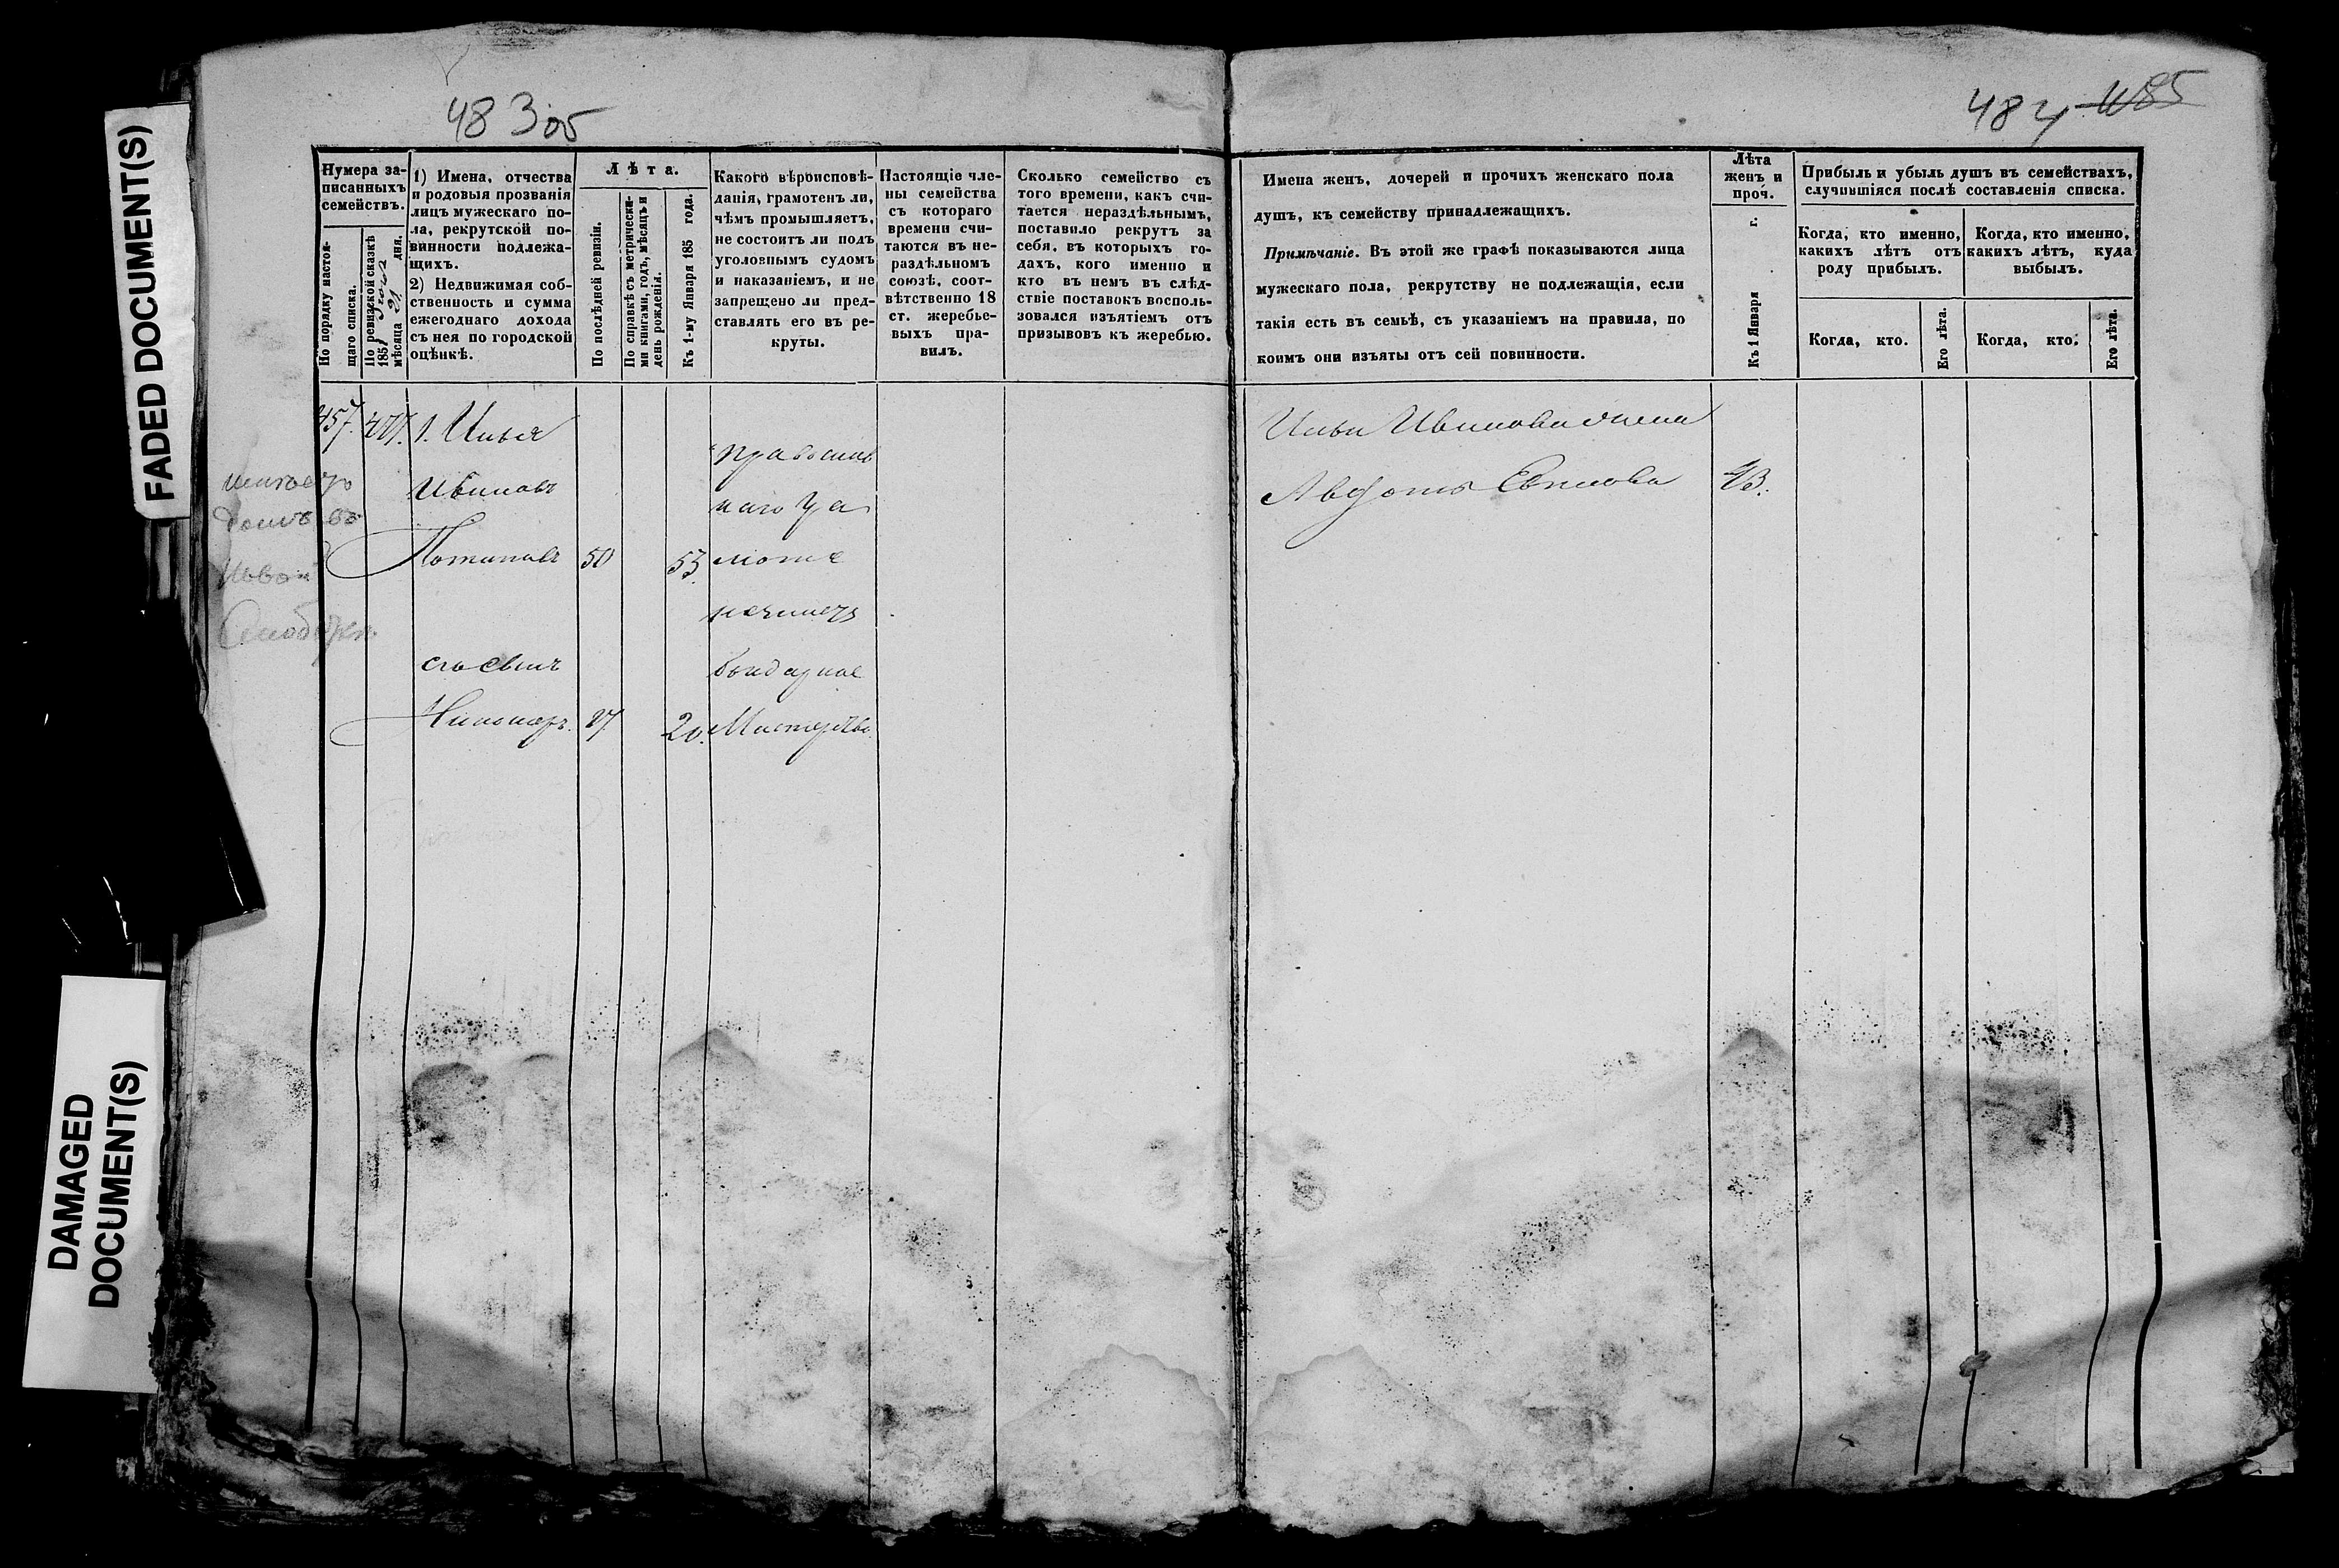 FADED DOCUMENT(S)
DAMAGED
DOCUMENT(S)
483 об
484 485
Нумера за-
писанныхъ
семействъ.
По порядку настоя-
щаго списка.
По ревизской сказкѣ
185
мѣсяца 21 дня.
1) Имена, отчества
и родовыя прозванія
лицъ мужескаго по-
ла, рекрутской по-
винности подлежа-
щихъ.
2) Недвижимая соб-
ственность и сумма
ежегоднаго дохода
съ нея по городской
оцѣнкѣ.
Лѣта.
По послѣдней ревизіи.
По справкѣ съ метрически-
ми книгами, годъ, мѣсяцъ и
день рожденія.
Къ 1-му Января 185 года.
Какого вѣроисповѣ-
данія, грамотенъ ли,
чѣмъ промышляетъ,
не состоитъ ли подъ
уголовнымъ судомъ
и наказаніемъ, и не
запрещено ли пред-
ставлять его въ ре-
круты.
Настоящіе чле-
ны семейства
съ котораго
времени счи-
таются въ не-
раздѣльномъ
союзѣ, соот-
вѣтственно 18
ст. жеребье-
выхъ пра-
вилъ.
Сколько семейство съ
того времени, какъ счи-
тается нераздѣльнымъ,
поставило рекрутъ за
себя, въ которыхъ го-
дахъ, кого именно и
кто въ немъ въ слѣд-
ствіе поставокъ восполь-
зовался изъятіемъ отъ
призывовъ къ жеребью.
Имена женъ, дочерей и прочихъ женскаго пола
душъ, къ семейству принадлежащихъ.
Примѣчаніе. Въ этой же графѣ показываются лица
мужескаго пола, рекрутству не подлежащія, если
такія есть въ семьѣ, съ указаніемъ на правила, по
коимъ они изъяты отъ сей повинности.
Лѣта
женъ и
проч.
Къ 1 Января г.
Прибыль и убыль душъ въ семействахъ,
случившіяся послѣ составленія списка.
Когда, кто именно,
какихъ лѣтъ отъ
роду прибылъ.
Когда, кто именно,
какихъ лѣтъ, куда
выбылъ.
Когда, кто.
Его лѣта.
Когда, кто.
Его лѣта.
457. 1. Илья
Ивановъ
50 53.
его сынъ
Никаноръ. 17 20.
Православ
наго
бондарное
Мастерство.
Ильи Иванова жена
Авдотья 43.